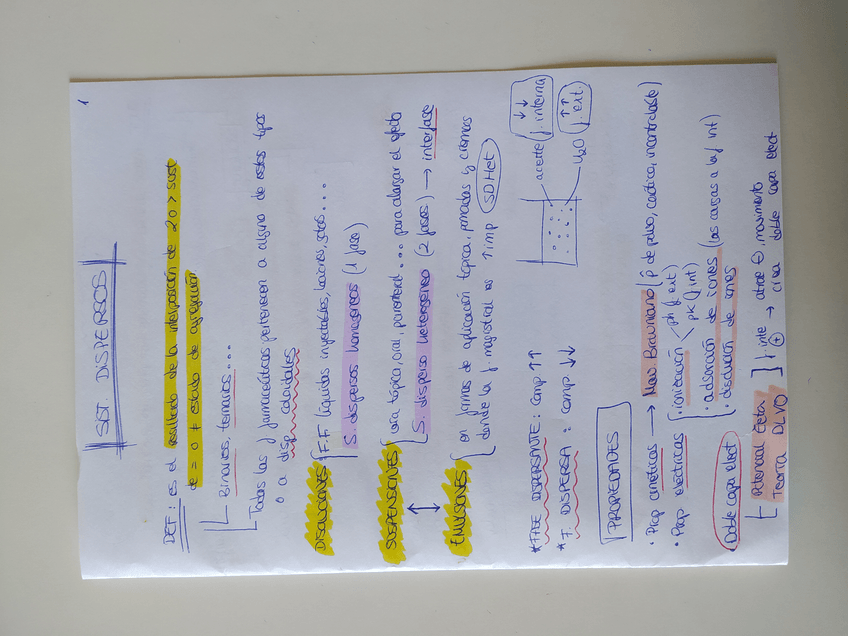 1
SIST. DISPERSOS
DEF: es el resultado de la interposición de 2 o > sust
de = o ≠ estado de agregación
Binarios, ternarios...
Todas las f farmacéuticas pertenecen a alguno de estos tipos
o a disp coloidales
DISOLUCIONES F.F líquidas inyectables, lociones, gotas....
S. dispersos homogéneos (1 fase)
SUSPENSIONES vía tópica, oral, parenteral... para alargar el efecto
S. disperso heterogéneo (2 fases) → interfase
EMULSIONES en formas de aplicación tópica, pomadas y cremas
donde la f. magistral es ↑imp SDHet
*FASE DISPERSANTE: comp ↑↑
*F. DISPERSA: comp ↓↓
aceite ↓↓ f. interna
H₂O ↑↑ f. ext
PROPIEDADES
• Prop cinéticas → Mov Browniano (p̂ de polvo, caótica, incontrolable)
• Prop eléctricas • ionización < ph (f. ext)
pk (f. int)
• adsorción de iones (las cargas a la f int)
• disolución de iones
• Doble capa elect
Potencial Zeta
Teoría DLVO
f. inte → atrae ⊖, movimiento
⊕ → crea doble capa elect